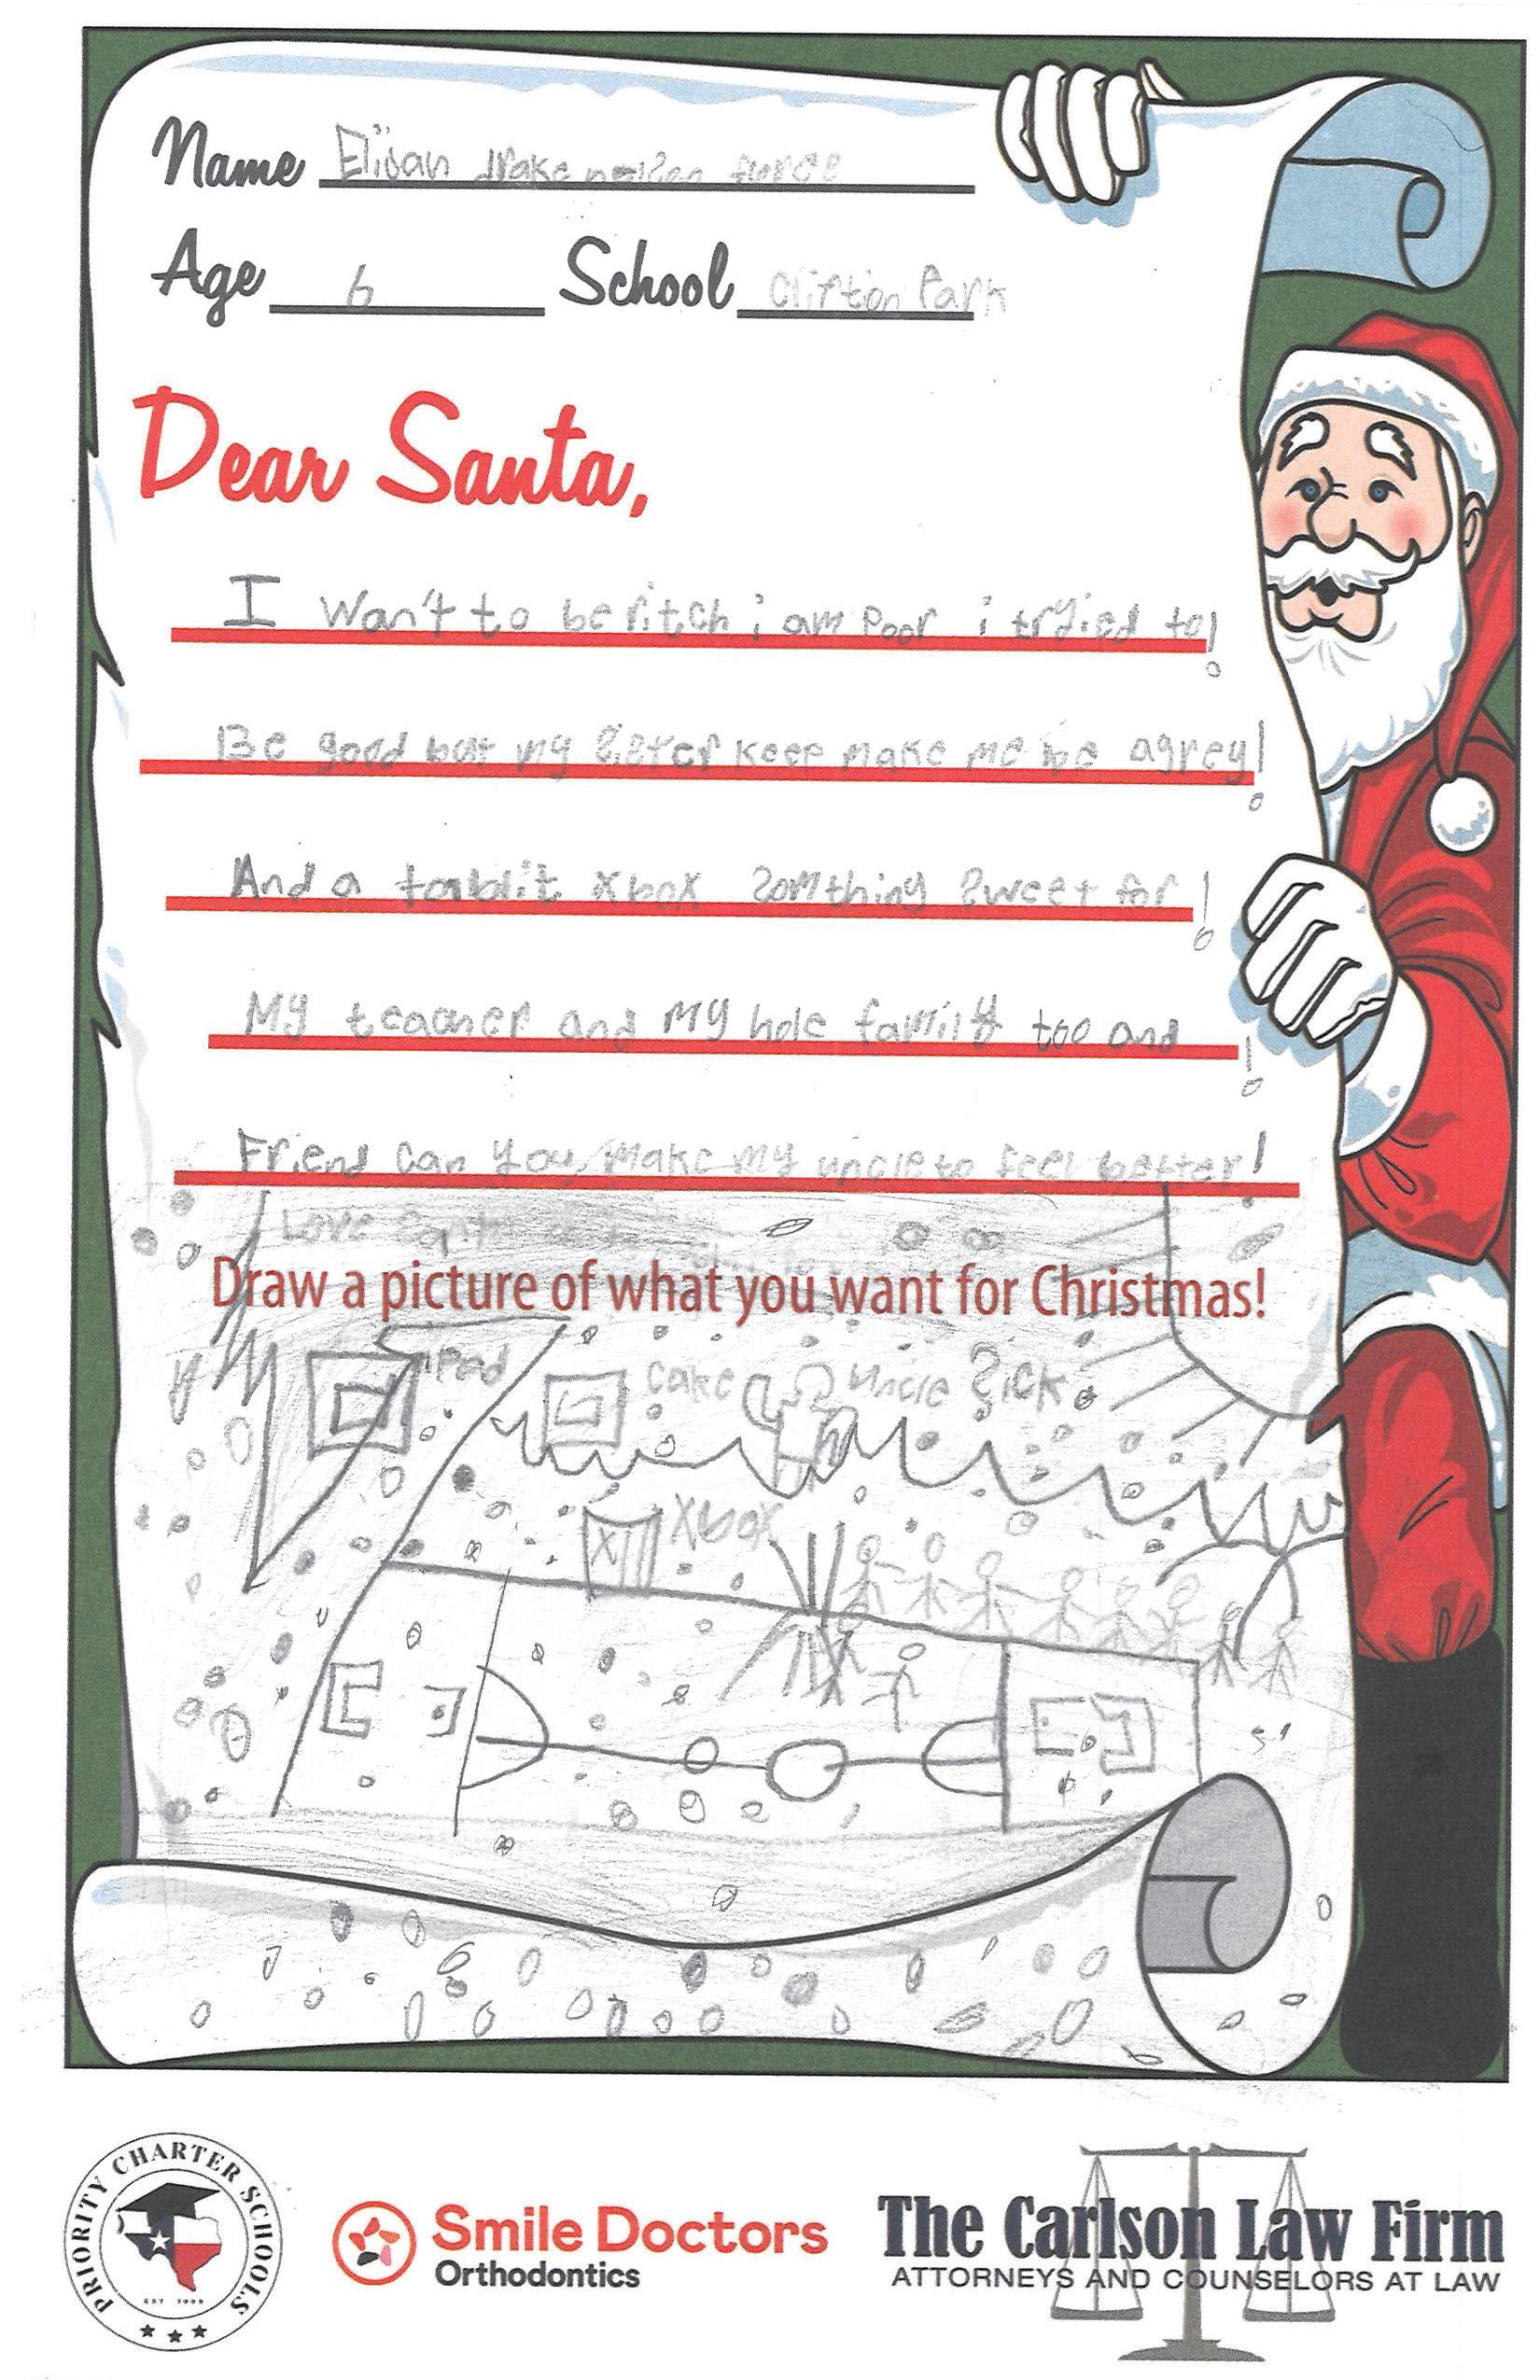 Name Elijah drake
Age 6 School Clifton Park
Dear Santa,
I Wan't to be ritch i am Poor i tryied to!
Be good but my sister keep make me be agrey!
And a tablit Xbox Somthing Sweet for!
My teacher and My hole family too and!
Friend can you make my uncle to feel better!
Love
Draw a picture of what you want for Christmas!
iPad cake uncle Sick
X Xbox
PRIORITY CHARTER SCHOOLS
Smile Doctors
Orthodontics
The Carlson Law Firm
ATTORNEYS AND COUNSELORS AT LAW